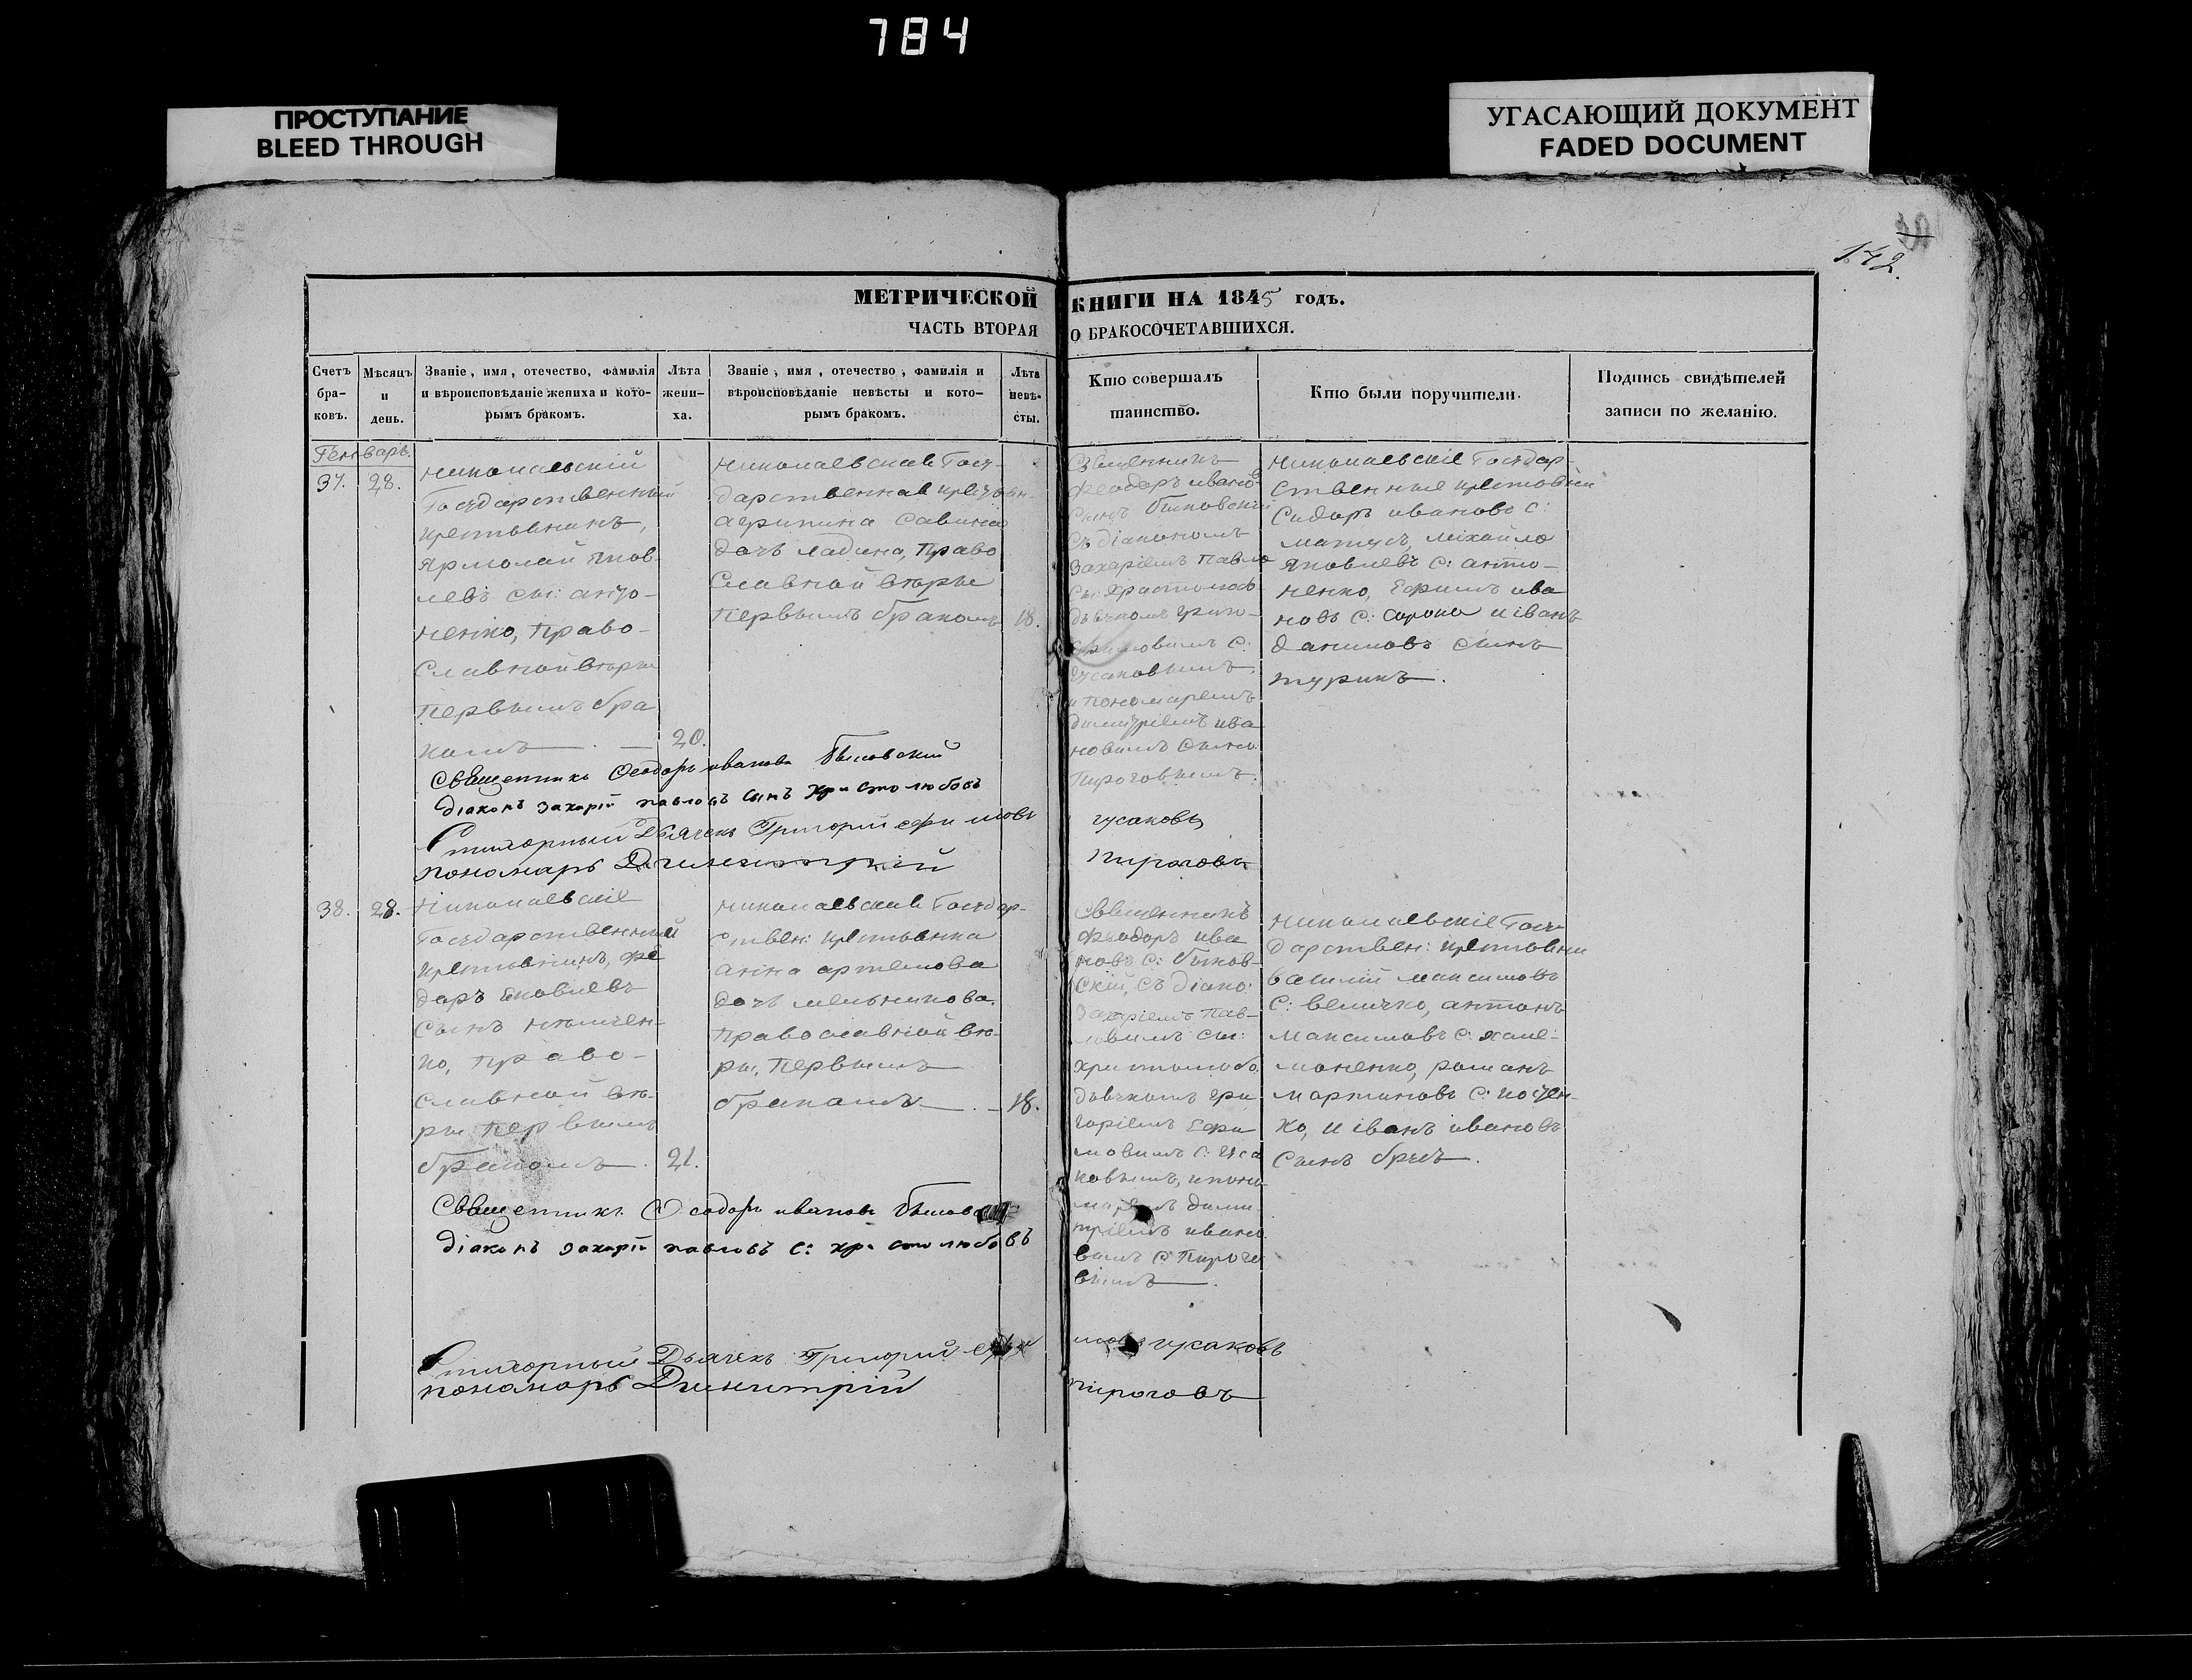 784
ПРОСТУПАНИЕ
BLEED THROUGH
УГАСАЮЩИЙ ДОКУМЕНТ
FADED DOCUMENT
142.
МЕТРИЧЕСКОЙ КНИГИ НА 1845 годъ.
ЧАСТЬ ВТОРАЯ О БРАКОСОЧЕТАВШИХСЯ.
Счетъ
бра-
ковъ.
Мѣсяцъ
и
день.
Званіе, имя, отечество, фамилія
и вѣроисповѣданіе жениха и кото-
рымъ бракомъ.
Лѣта
жени-
ха.
Званіе, имя, отечество, фамилія и
вѣроисповѣданіе невѣсты и кото-
рымъ бракомъ.
Лѣта
невѣ-
сты.
Кто совершалъ
таинство.
Кто были поручители.
Подпись свидѣтелей
записи по желанію.
Генварь.
37.
28.
николаевскій
Государственный
крестьянинъ,
Ярмолай Яков-
левъ сы: анто-
ненко, Право-
славной вѣры
Первымъ бра
комъ
20.
николаевская Госу-
дарственная крестьян-
агрипина савина
дочь ладина, Право
славной вѣры
Первымъ бракомъ
18.
Священникъ
Феодоръ ивано
сынъ Быковскій
съ діакономъ
Захаріемъ Павло
сы: христолюб
дьячкомъ григо-
Ефимовымъ с:
гусаковымъ,
и пономаремъ
димитріемъ ива
новымъ сыно
Пироговымъ.
николаевскіе Государ-
ственные крестьяни
Сидоръ ивановъ с:
матусъ, міхайло
Яковлевъ с: анто-
ненко, Ефимъ ива
новъ с: сорока и іванъ
даниловъ сынъ
турикъ.
Священникъ Феодоръ иванов Быковский
діаконъ захарій павловъ сынъ христолюбовъ
Стихорный Дьячекъ Григорий ефимовъ гусаковъ
пономарь Димитрий Пироговъ
38.
28.
Николаевскіе
Государственный
крестьянинъ, фе
доръ Яковлевъ
сынъ
ко, право-
славной вѣ-
ры первымъ
бракомъ.
21.
николаевская Государ-
ствен: крестьянка
анна артемова
дочь мельникова,
православной вѣ-
ры, Первымъ
бракомъ.
18.
Священникъ
Феодоръ ива
новъ с: быков-
скій, съ діако:
Захаріемъ Пав-
ловымъ сы:
христолюбо
дьячкомъ гри
горіемъ Ефи
мовымъ с: гуса
ковымъ, и поно
маремъ дими
тріемъ ивано
вымъ с: Пирого
вымъ.
николаевскіе Госу
дарствен: крестьяни
василій максимовъ
с: величко, антонъ
максимовъ с:
моненко, романъ
мартиновъ с:
ко, и іванъ ивановъ
сынъ
Священникъ Феодоръ иванов Быков
діаконъ захарій павловъ с: христолюбовъ
Стихорный Дьячекъ Григорий ефимовъ гусаковъ
пономарь Димитрій пироговъ